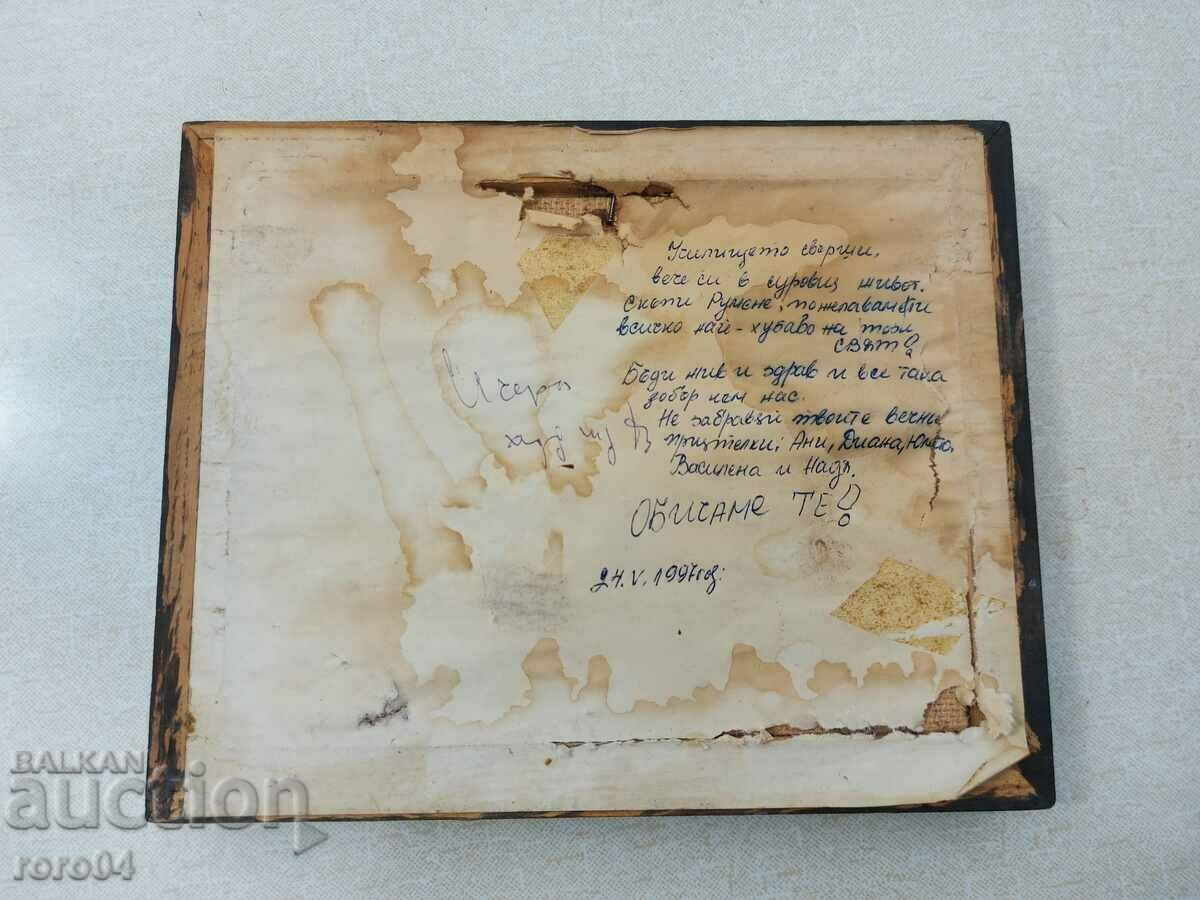 Училището свърши,
вече си в суровия живот.
Скъпи Румене, пожелаваме ти
всичко най-хубаво на този
свят!
Бъди жив и здрав и все така
добър към нас.
Не забравяй твоите вечни
приятелки: Ани, Диана,
Василена и Надя.
ОБИЧАМЕ ТЕ!
24.V.1997год.
BALKAN
auction
roro04